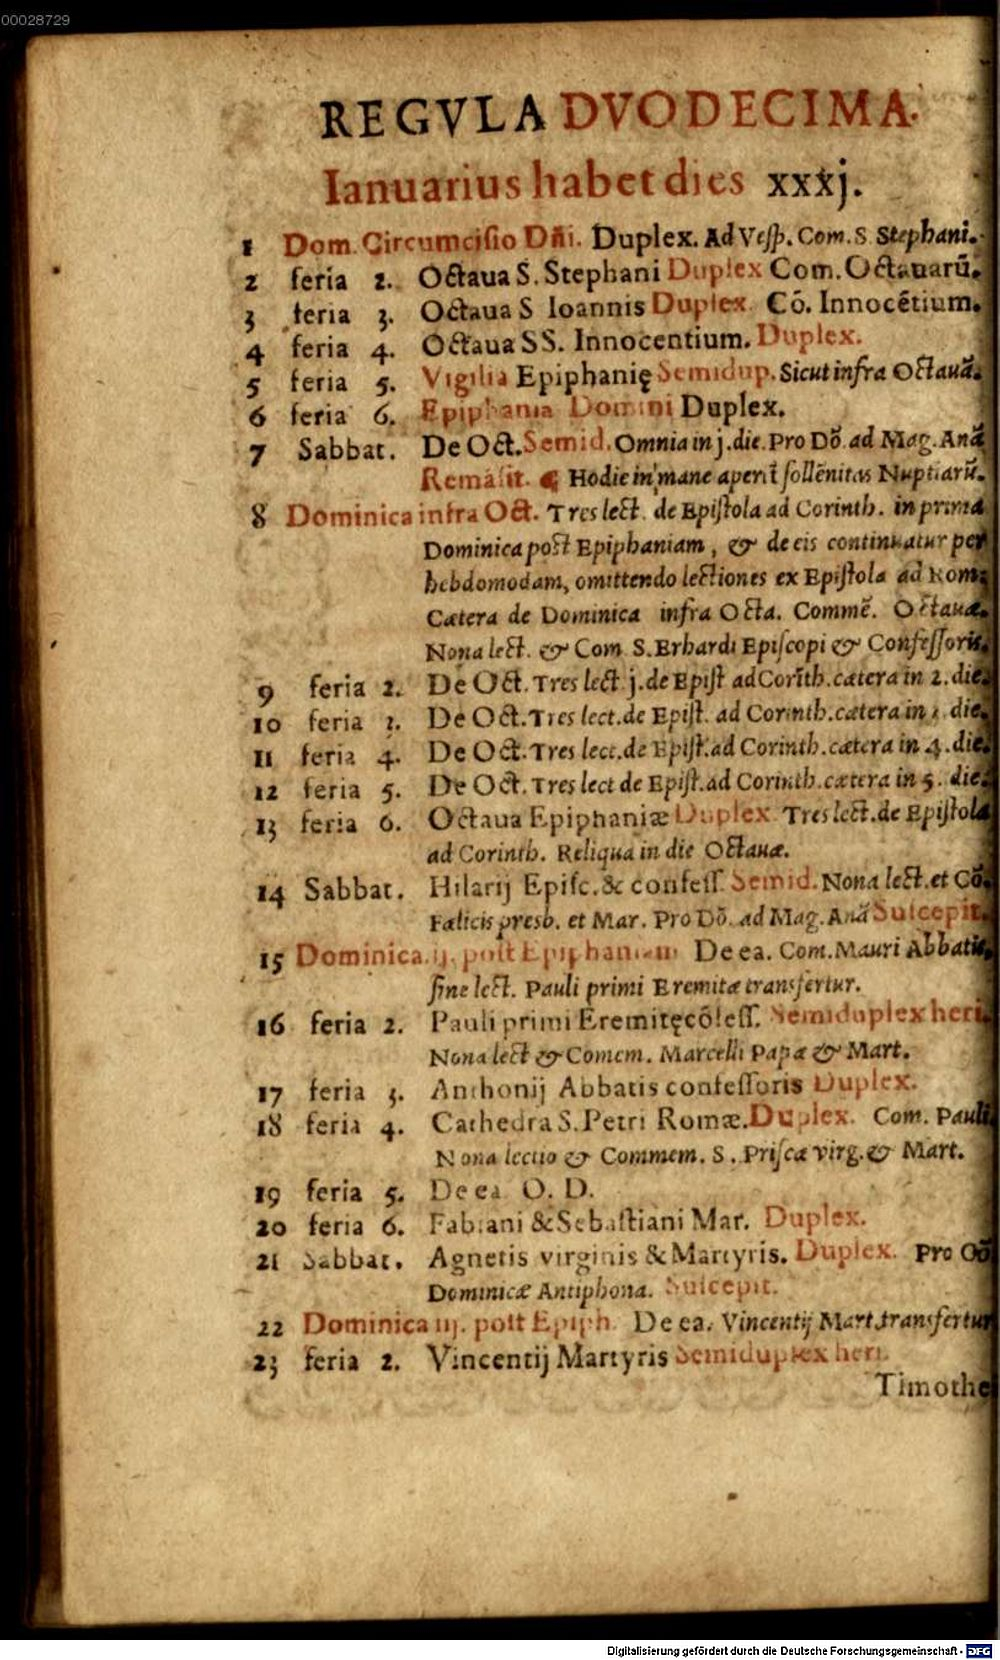 00028729
REGVLA DVODECIMA.
Ianuarius habet dies xxxj.
1 Dom. Circumcisio Dñi. Duplex. Ad Vesp. Com. S. Stephani.
2 feria 2. Octaua S. Stephani Duplex Com. Octauarũ.
3 feria 3. Octaua S Ioannis Duplex. Cõ. Innocẽtium.
4 feria 4. Octaua SS. Innocentium. Duplex.
5 feria 5. Vigilia Epiphanię Semidup. Sicut infra Octauã.
6 feria 6. Epiphania Domini Duplex.
7 Sabbat. De Oct. Semid. Omnia in j. die. Pro Dõ. ad Mag. Anã
Remãsit. Hodie in mane aperit sollẽnitas Nuptiarũ.
8 Dominica infra Oct. Tres lect. de Epistola ad Corinth. in prima
Dominica post Epiphaniam, & de eis continuatur per
hebdomodam, omittendo lectiones ex Epistola ad Rom.
Cætera de Dominica infra Octa. Commẽ. Octauæ.
Nona lect. & Com. S. Erhardi Episcopi & Confessoris.
9 feria 2. De Oct. Tres lect. j. de Epist ad Corĩth. cætera in 2. die.
10 feria 3. De Oct. Tres lect. de Epist. ad Corinth. cætera in 3. die.
11 feria 4. De Oct. Tres lect. de Epist. ad Corinth. cætera in 4. die.
12 feria 5. De Oct. Tres lect de Epist. ad Corinth. cætera in 5. die.
13 feria 6. Octaua Epiphaniæ Duplex. Tres lect. de Epistola
ad Corinth. Reliqua in die Octauæ.
14 Sabbat. Hilarij Episc. & confess. Semid. Nona lect. et Cõ.
Fælicis presb. et Mar. Pro Dõ. ad Mag. Anã Suscepit.
15 Dominica. ij. post Epiphaniam De ea. Com. Mauri Abbatis,
sine lect. Pauli primi Eremitæ transfertur.
16 feria 2. Pauli primi Eremitę cõfess. Semiduplex heri.
Nona lect & Comem. Marcelli Papæ & Mart.
17 feria 3. Anthonij Abbatis confessoris Duplex.
18 feria 4. Cathedra S. Petri Romæ. Duplex. Com. Pauli
Nona lectio & Commem. S. Priscæ virg. & Mart.
19 feria 5. De ea O. D.
20 feria 6. Fabiani & Sebastiani Mar. Duplex.
21 Sabbat. Agnetis virginis & Martyris. Duplex. Pro
Dominicæ Antiphona. Suscepit.
22 Dominica iij. post Epiph. De ea. Vincentij Mart. transfertur
23 feria 2. Vincentij Martyris Semiduplex heri.
Timothe
Digitalisierung gefördert durch die Deutsche Forschungsgemeinschaft - DFG